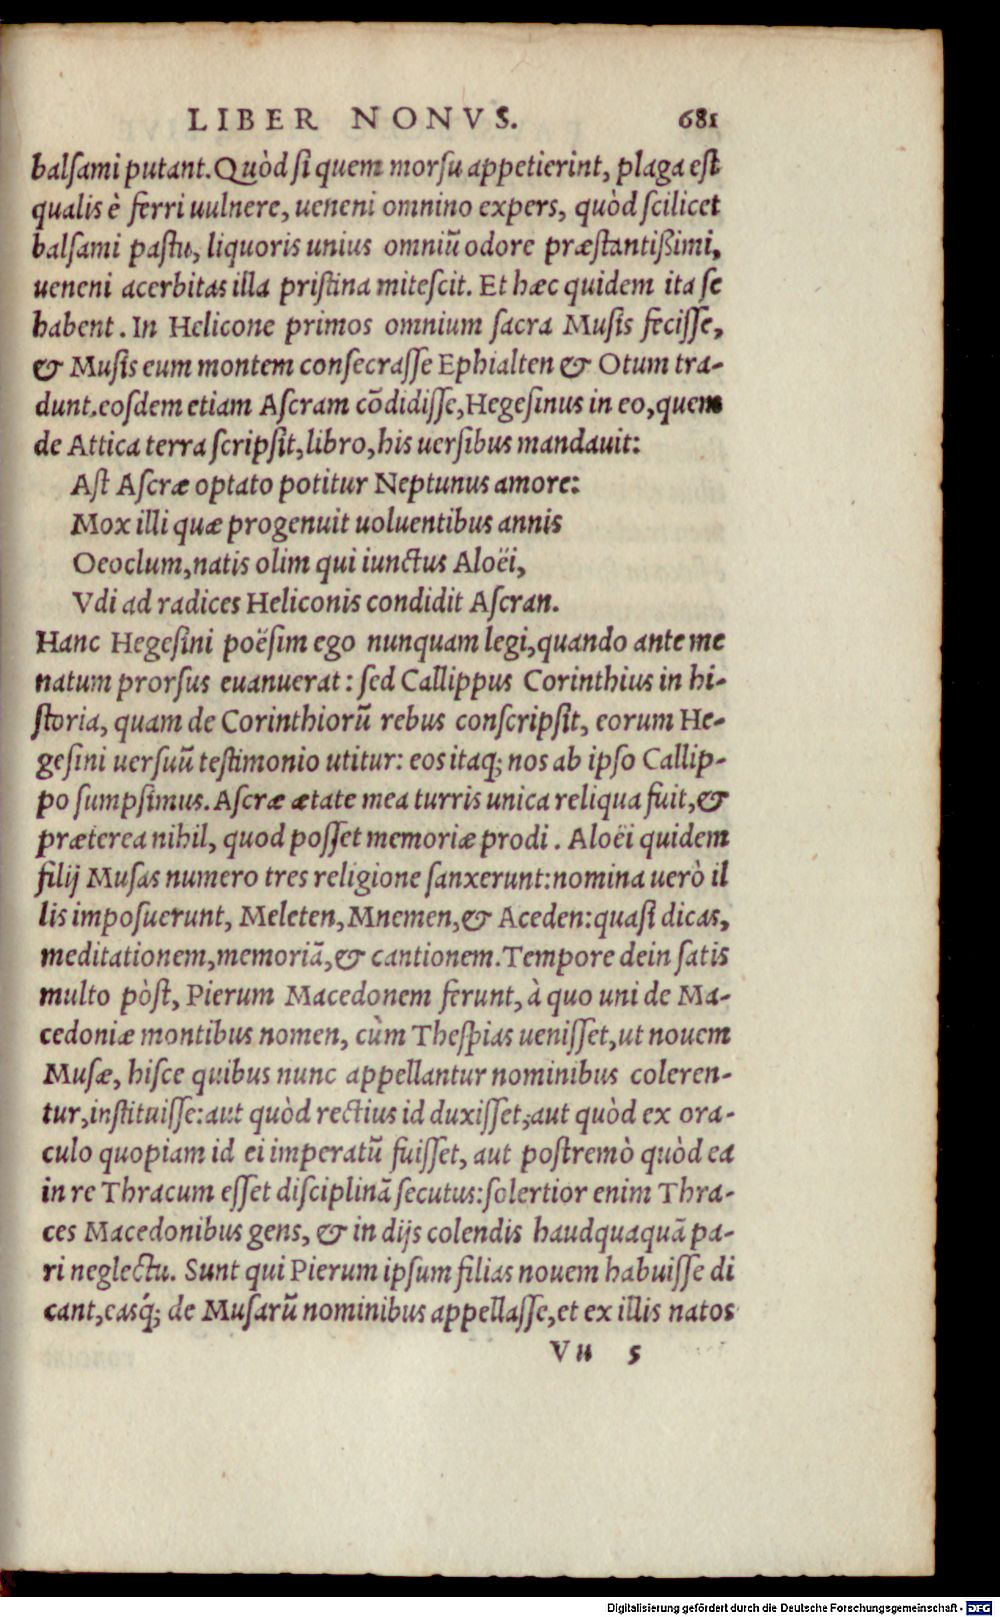 LIBER NONVS. 681
balſami putant. Quòd ſi quem morſu appetierint, plaga eſt
qualis è ferri uulnere, ueneni omnino expers, quòd ſcilicet
balſami paſtu, liquoris unius omniũ odore præſtantißimi,
ueneni acerbitas illa priſtina miteſcit. Et hæc quidem ita ſe
habent. In Helicone primos omnium ſacra Muſis feciſſe,
& Muſis eum montem conſecraſſe Ephialten & Otum tra-
dunt. eoſdem etiam Aſcram cõdidiſſe, Hegeſinus in eo, quem
de Attica terra ſcripſit, libro, his uerſibus mandauit:
Aſt Aſcræ optato potitur Neptunus amore:
Mox illi quæ progenuit uoluentibus annis
Oeoclum, natis olim qui iunctus Aloëi,
Vdi ad radices Heliconis condidit Aſcran.
Hanc Hegeſini poëſim ego nunquam legi, quando ante me
natum prorſus euanuerat: ſed Callippus Corinthius in hi-
ſtoria, quam de Corinthiorũ rebus conſcripſit, eorum He-
geſini uerſuũ teſtimonio utitur: eos itaq; nos ab ipſo Callip-
po ſumpſimus. Aſcræ ætate mea turris unica reliqua fuit, &
præterea nihil, quod poſſet memoriæ prodi. Aloëi quidem
filij Muſas numero tres religione ſanxerunt: nomina uerò il
lis impoſuerunt, Meleten, Mnemen, & Aceden: quaſi dicas,
meditationem, memoriã, & cantionem. Tempore dein ſatis
multo pòſt, Pierum Macedonem ferunt, à quo uni de Ma-
cedoniæ montibus nomen, cùm Theſpias ueniſſet, ut nouem
Muſæ, hiſce quibus nunc appellantur nominibus coleren-
tur, inſtituiſſe: aut quòd rectius id duxiſſet, aut quòd ex ora-
culo quopiam id ei imperatũ fuiſſet, aut poſtremò quòd ea
in re Thracum eſſet diſciplinã ſecutus: ſolertior enim Thra-
ces Macedonibus gens, & in dijs colendis haudquaquã pa-
ri neglectu. Sunt qui Pierum ipſum filias nouem habuiſſe di
cant, easq́; de Muſarũ nominibus appellaſſe, et ex illis natos
Vu 5
Digitalisierung gefördert durch die Deutsche Forschungsgemeinschaft - DFG